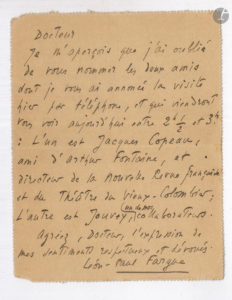 Docteur
Je m'aperçois que j'ai oublié
de vous nommer les deux amis
dont je vous ai annoncé la visite
hier par téléphone, et qui viendront
vous voir aujourd'hui entre 2h ½ et 3h
: L'un est Jacques Copeau,
ami d'Arthur Fontaine, et
directeur de la Nouvelle Revue française
et du Théâtre du Vieux-Colombier;
L'autre est Jouvey, collaborateurs.
Agréez, Docteur, l'expression de
mes sentiments respectueux et dévoués.
Léon-Paul Fargue